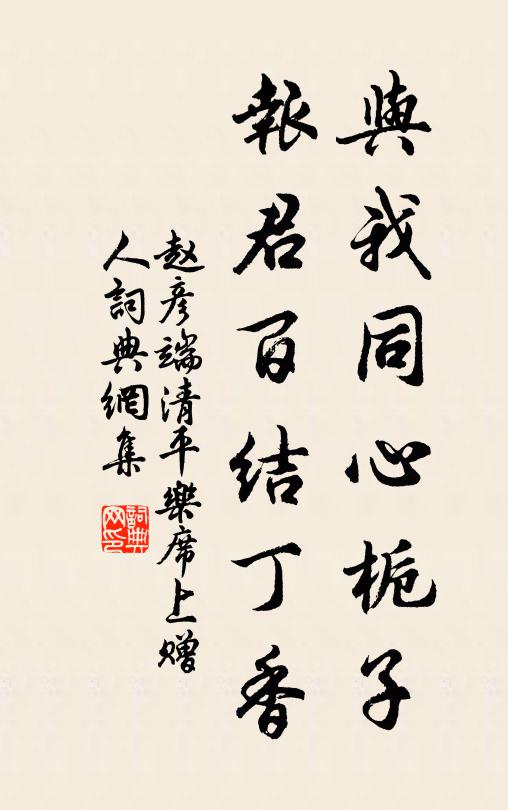 與我同心梔子
報君百结丁香
赵彦端清平樂席上赠
人詞典網集
詞典网印